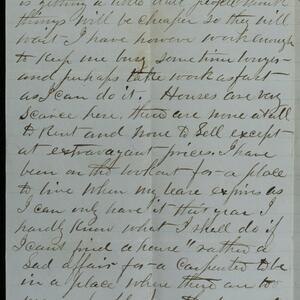 is getting a little dull, people think
things will be cheaper so they will
wait I have however work enough
to keep me busy some time longer
and perhaps take work as fast
as I can do it. Houses are very
Scarce here, there are none at all
to Rent and none to Sell except
at extravagant prices. I have
been on the lookout for a place
to live when my lease expires as
I can only have it this year I
hardly know what I shall do if
I cant find a house "rather a
Sad affair for a Carpenter to be
in a place where there are to